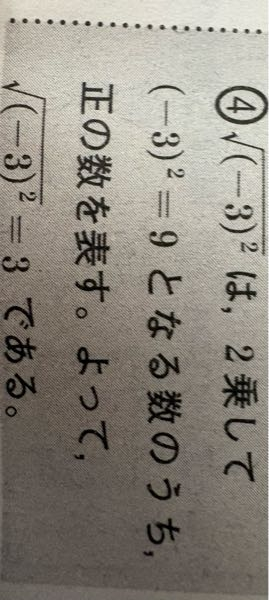 ④√(−3)² は, 2乗して
(−3)²＝9 となる数のうち,
正の数を表す。よって,
√(−3)²＝3 である。